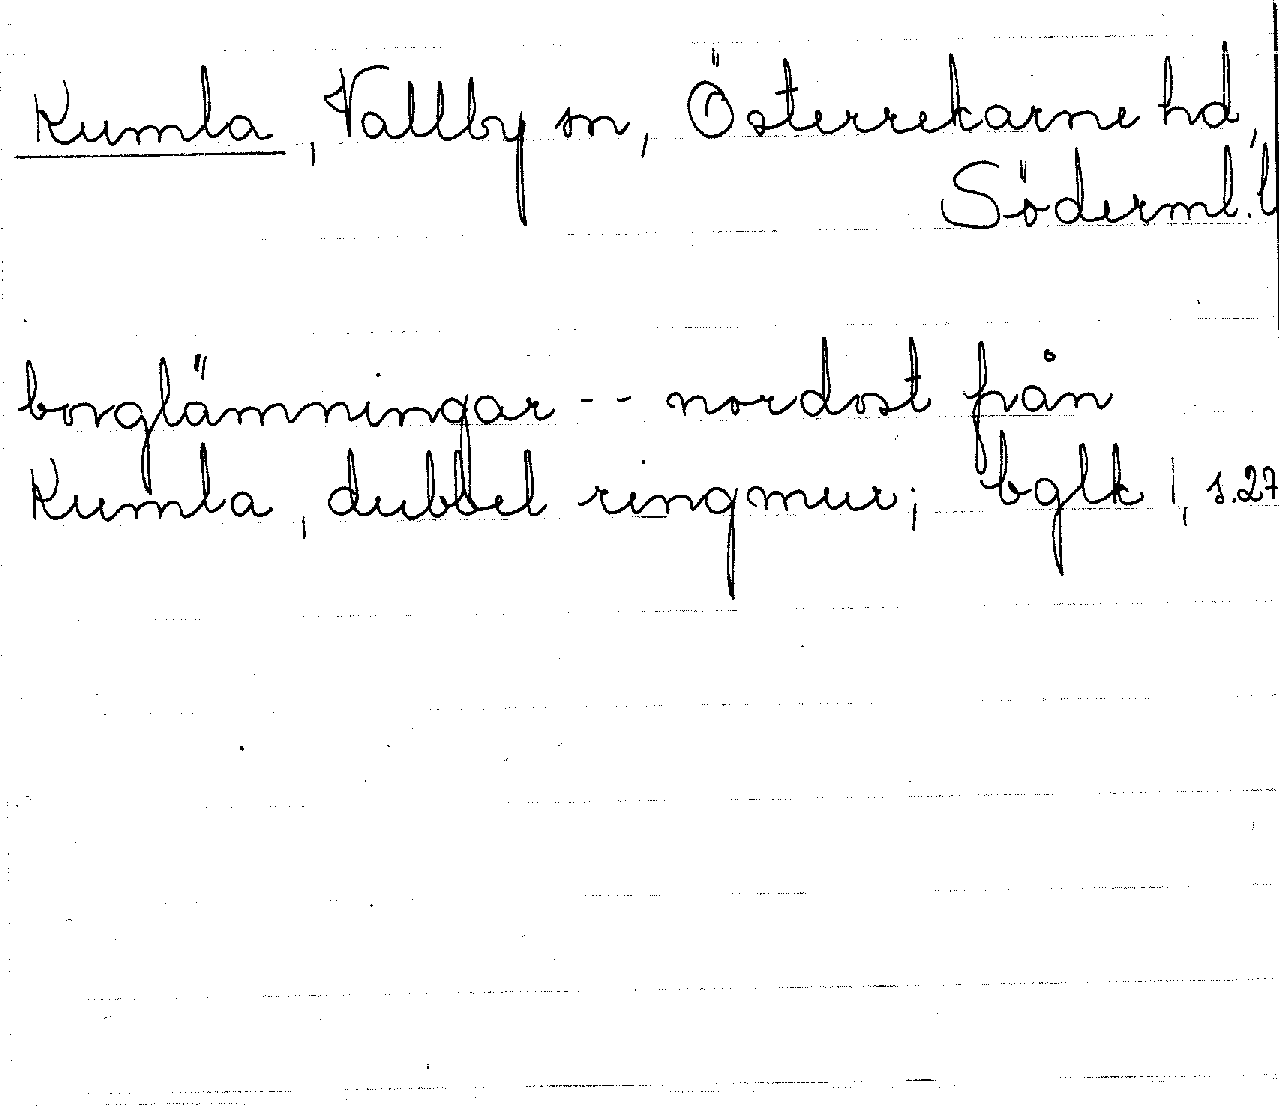 Kumla, Vallby sn, Österrekarne hd,
Söderml. l
borglämningar -- nordost från
Kumla, dubbel ringmur; bglk 1, s.27